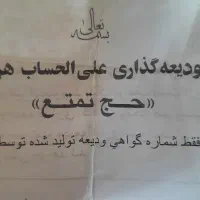 بسمه تعالی
ودیعه گذاری علی الحساب
«حج تمتع»
فقط شماره گواهی ودیعه تولید شده توسط